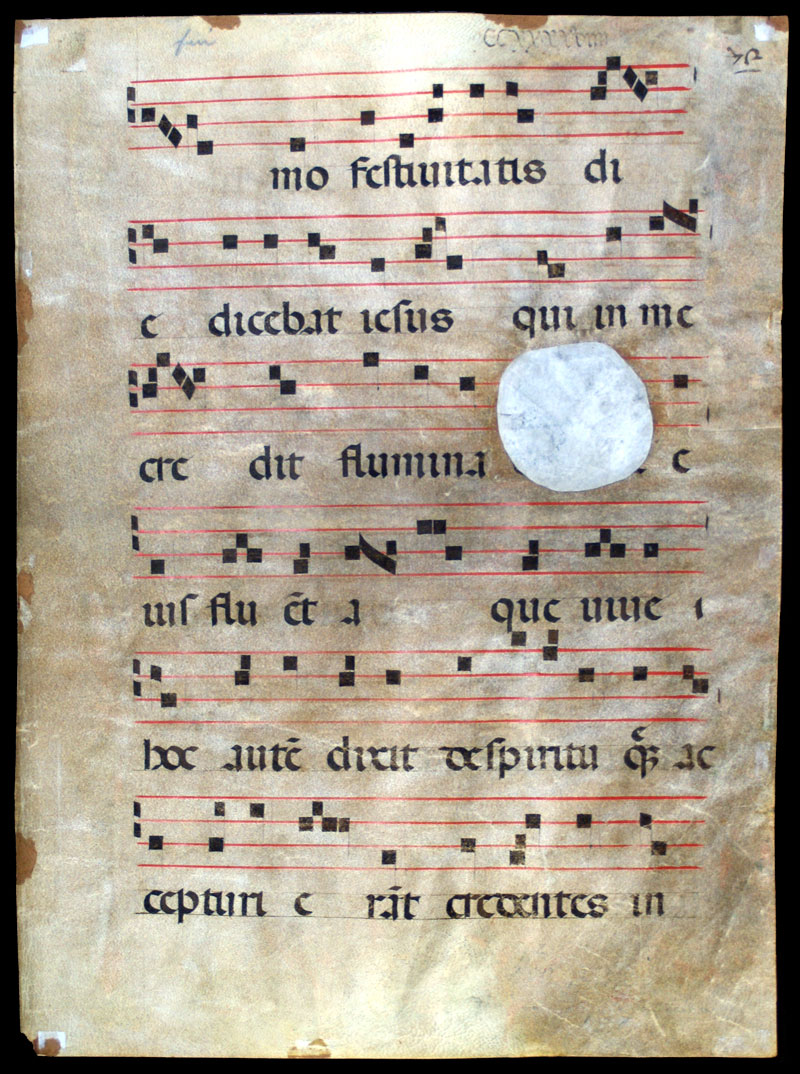 mo festiuitatis di
e dicebat iesus qui in me
cre dit flumina e
uis flu ēt a que uiue
hoc autē dixit de spiritu ac
cepturi e rāt credentes in